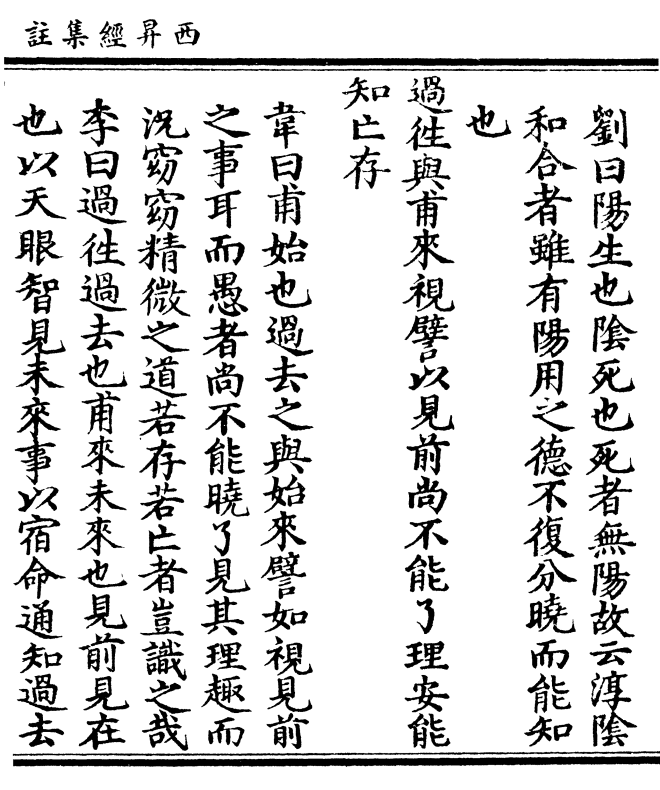 西昇經集註
劉曰陽生也陰死也死者無陽故云淳陰
和合者雖有陽用之德不復分曉而能知
也
過徃與甫來視譬以見前尚不能了理安能
知亡存
韋曰甫始也過去之與始來譬如視見前
之事耳而愚者尚不能曉了見其理趣而
況窈窈精微之道若存若亡者豈識之哉
李曰過徃過去也甫來未來也見前見在
也以天眼智見未來事以宿命通知過去